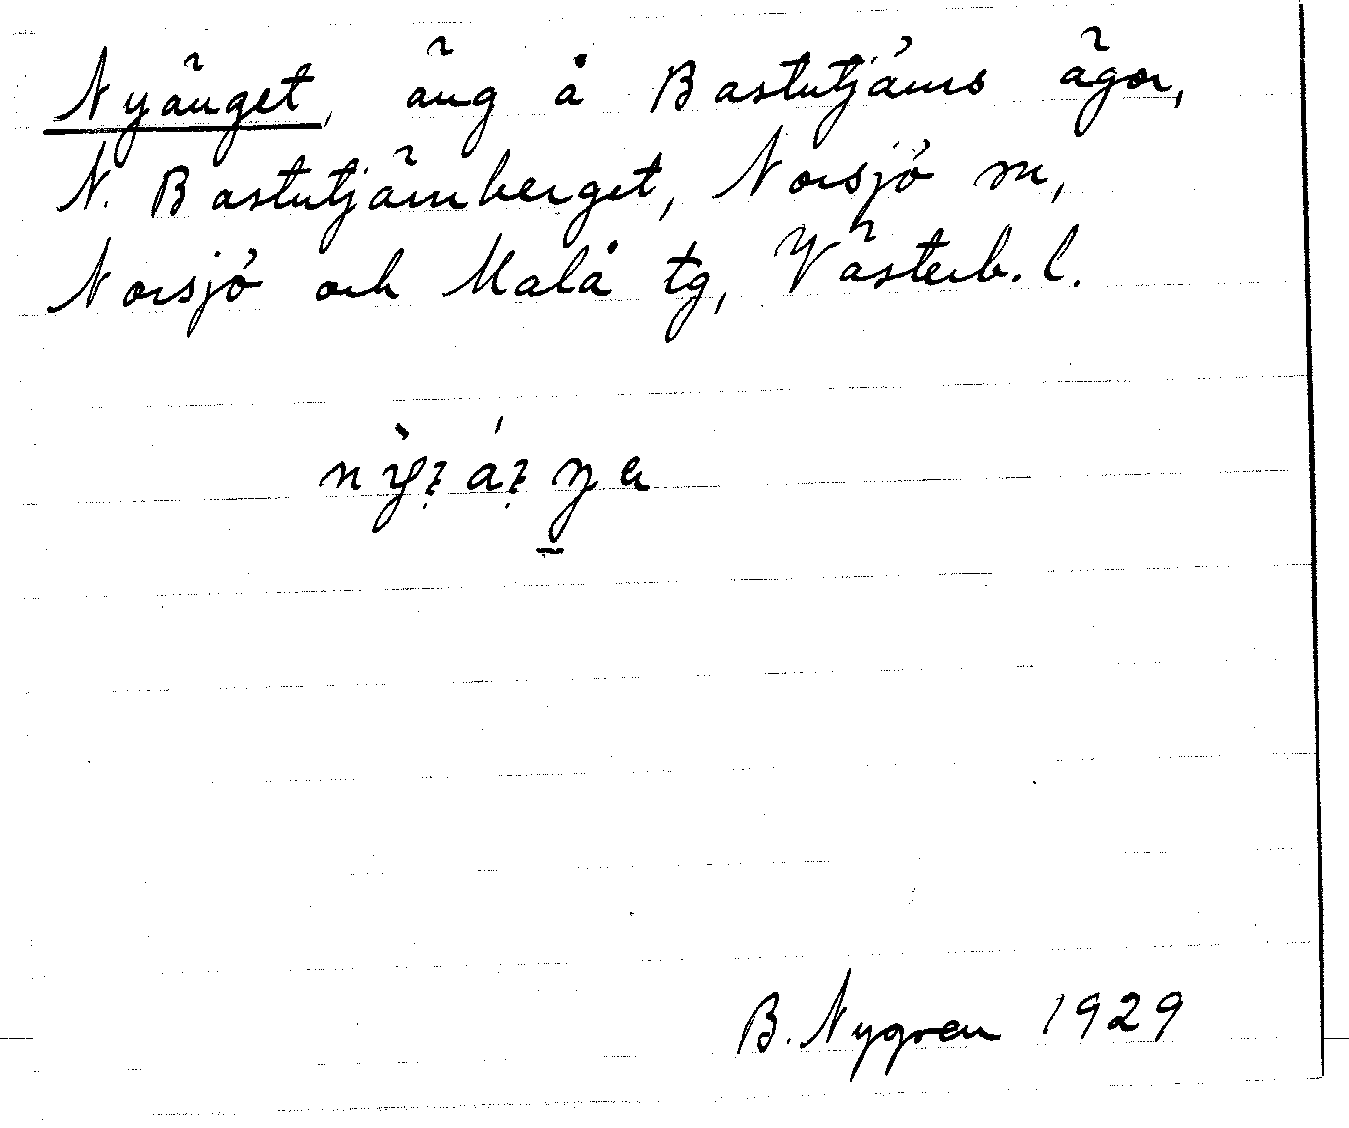 Nyänget, äng å Bastutjärns ägor,
N. Bastutjärnberget, Norsjö sn,
Norsjö och Malå tg, Västerb. l.
B. Nygren 1929